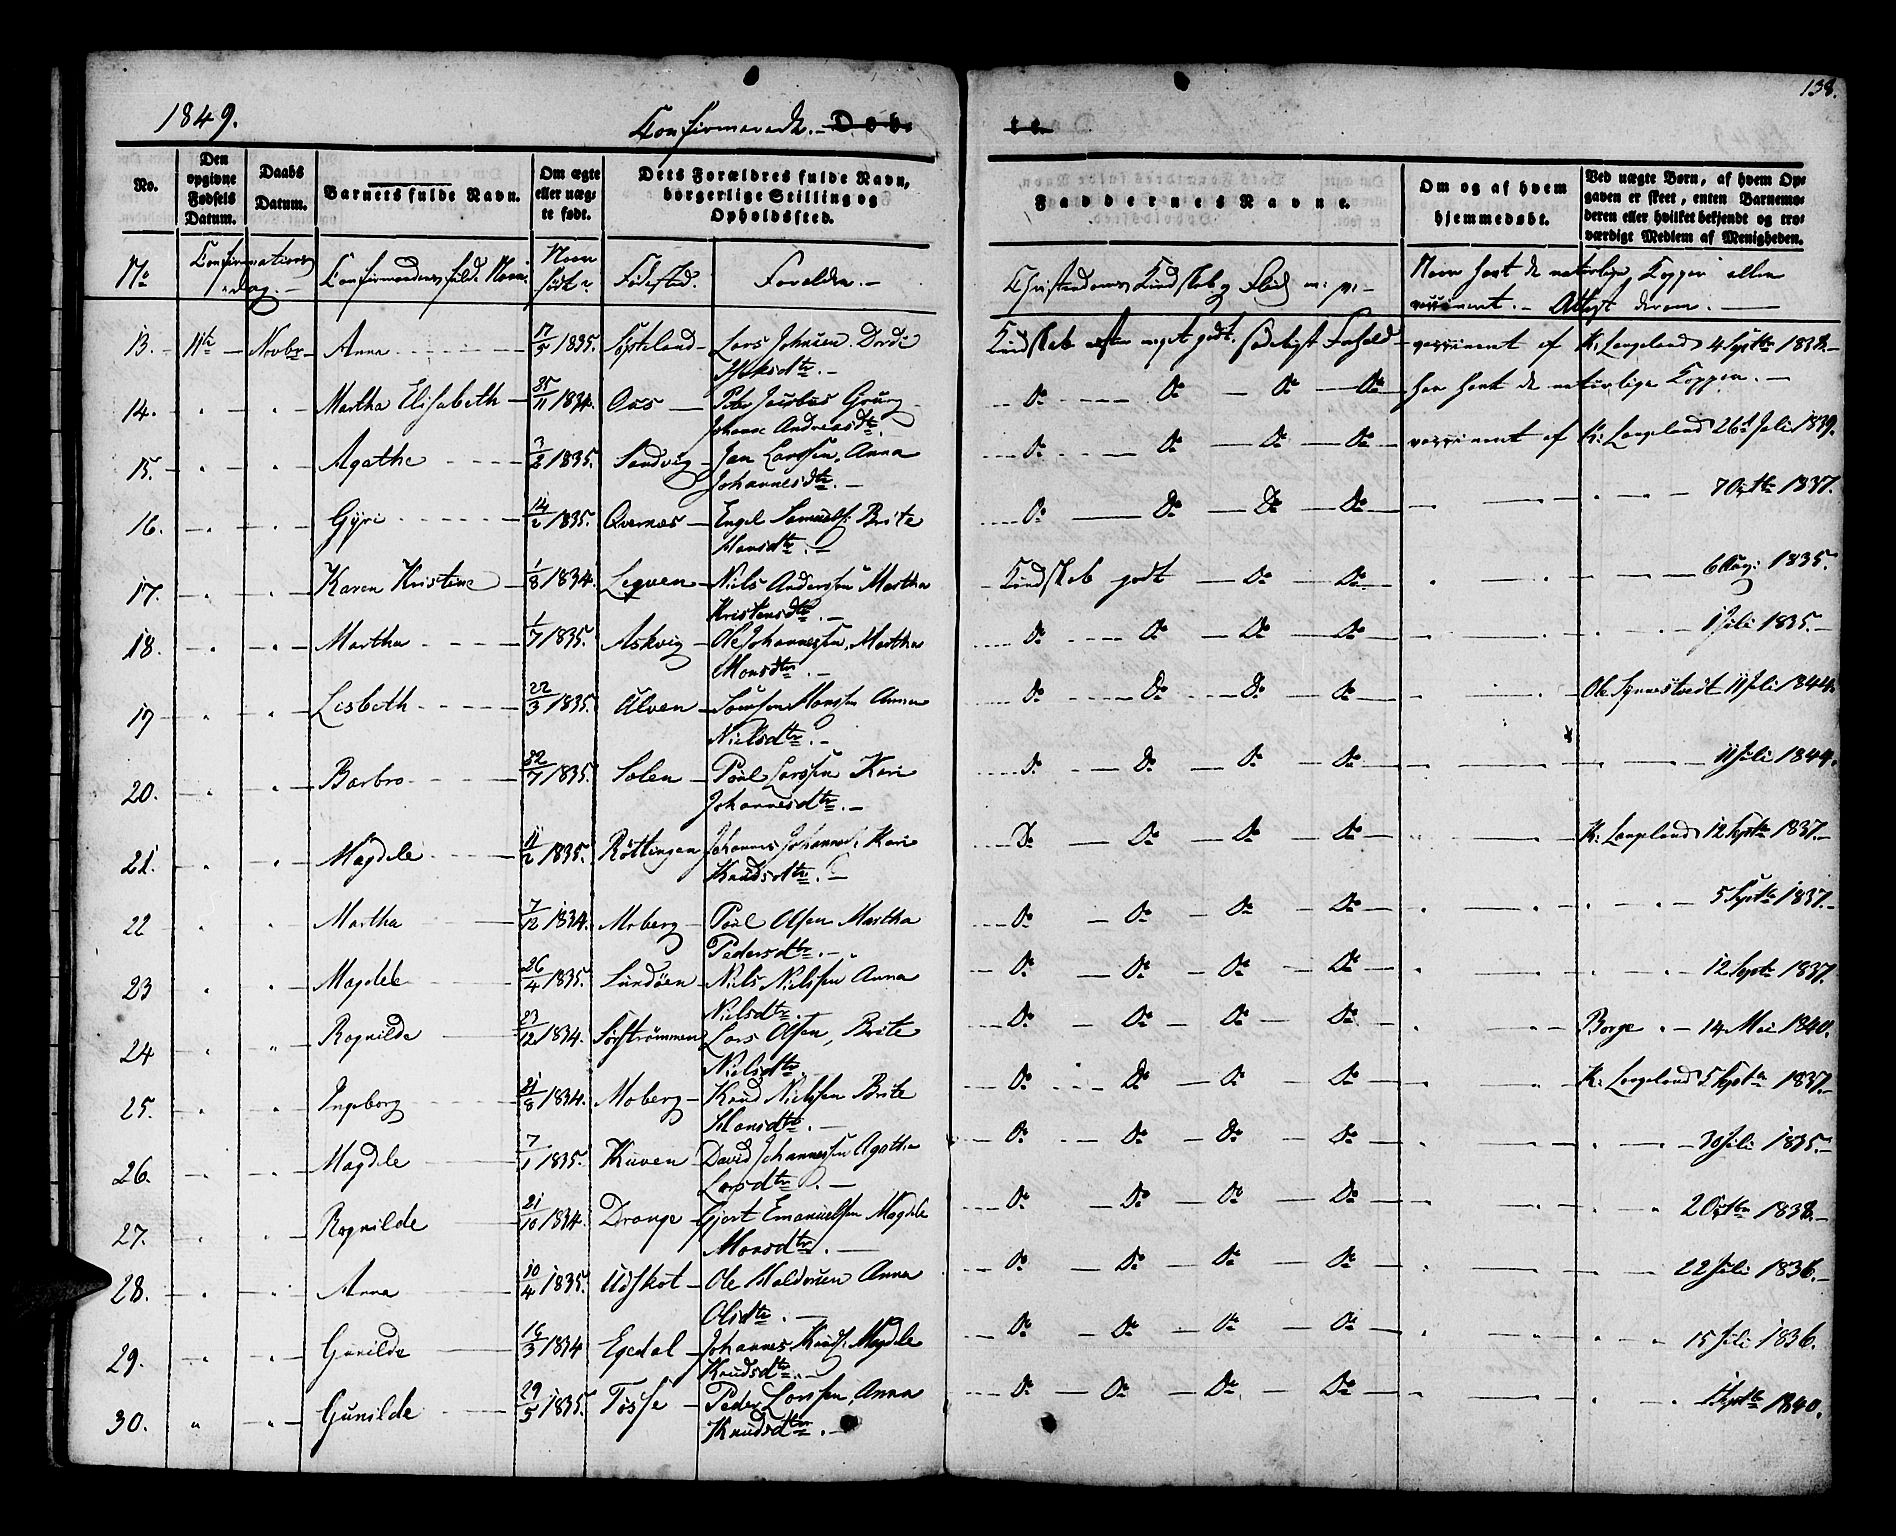 1849.
Confirmerede. Døb-
te.
138.
No.
Den opgivne Fødsels Datum.
Daabs Datum.
Barnets fulde Navn.
Om ægte eller uægte født.
Dets Forældres fulde Navn, borgerlige Stilling og Opholdssted.
Faddernes Navne.
Om og af hvem hjemmedøbt.
Ved uægte Børn, af hvem Opgaven er skeet, enten Barnemoderen eller hvilket bekjendt og troværdige Medlem af Menigheden.
No Confirmations Dag. Confirmandens fulde Navn. Naar født? Fødested. Foreldre. Christendoms Kundskab og Flid Naar havt de naturlige Kopper eller
vaccineret. Attest derom.
13. 11te Novbr Anna 17/5 1835. Lars Johnsen Dordi Kundskab meget godt. sædeligt Forhold vaccineret af K: Langeland 4 Septbr 1838.
14. " " Martha Elisabeth 25/11 1834. Oos Peter Jacobus Grung Do Do Do Do har havt de naturlige Kopper.
Johanne Andreasdtr.
15. " " Agathe 3/2 1835. Sandvig Jan Larssen, Anna Do Do Do Do vaccineret af K: Langeland 26 Juli 1839.
Johannesdtr.
16. " " Gyri 14/2 1835. Qvernæs Engel Samuels. Brite Do Do Do Do " " 7 Octbr 1837.
Hansdtr.
17. " " Karen Kristine 1/8 1834. Lepven Niels Anderssen Martha Kundskab godt Do Do " " 6 Aug: 1835.
Kristensdtr.
18. " " Martha 1/7 1835. Askvig Ole Johannessen, Martha Do Do Do Do " " 1 Juli 1835.
Monsdtr.
19 " " Lisbeth 22/3 1835. Ulven Monssen Anna Do Do Do Do " Ole Synnestvedt 11 Juli 1844.
Nielsdtr.
20. " " Barbro 22/7 1835. Solen Poul Larssen Kari Do Do Do Do " " 11 Juli 1844.
Johannesdtr.
21. " " Magdele 11/2 1835. Røttingen Johannes Johannes. Kari Do Do Do Do " K: Langeland 12 Septbr 1837.
Knudsdtr.
22 " " Martha 7/12 1834. Moberg Poul Olsen Martha Do Do Do Do " " 5 Septbr 1837.
Pedersdtr.
23 " " Magdele 26/4 1835. Sundöen Niels Nielssen Anna Do Do Do Do " " 12 Septbr 1837.
Nielsdtr.
24 " " Ragnilde 23/12 1834. Sørstrømmen Lars Olsen, Brite Do Do Do Do " Borge 14 Mai 1840.
Nielsdtr.
25. " " Ingeborg 21/8 1834. Moberg Knud Nielssen Brite Do Do Do Do " K: Langeland 5 Septbr 1837.
Hansdtr.
26. " " Magdele 7/1 1835. Kuven David Johannessen Agatha Do Do Do Do " " 30 Juli 1835.
Larsdtr.
27. " " Ragnilde 21/10 1834. Drange Gjert Emanuelsen Magdele Do Do Do Do " " 2 Octbr 1838.
Monsdtr.
28. " " Anna 10/4 1835. Udskot Ole Haldorsen Anna Do Do Do Do " " 22 Juli 1836.
Olsdtr.
29. " " Gunilde 16/3 1834 Egedal Johannes Knuds. Magdele Do Do Do Do " " 15 Juli 1836.
Knudsdtr.
30. " " Gunilde 29/5 1835. Tøsse Peder Larssen, Anna Do Do Do Do " " 1 Septbr 1840.
Knudsdtr.